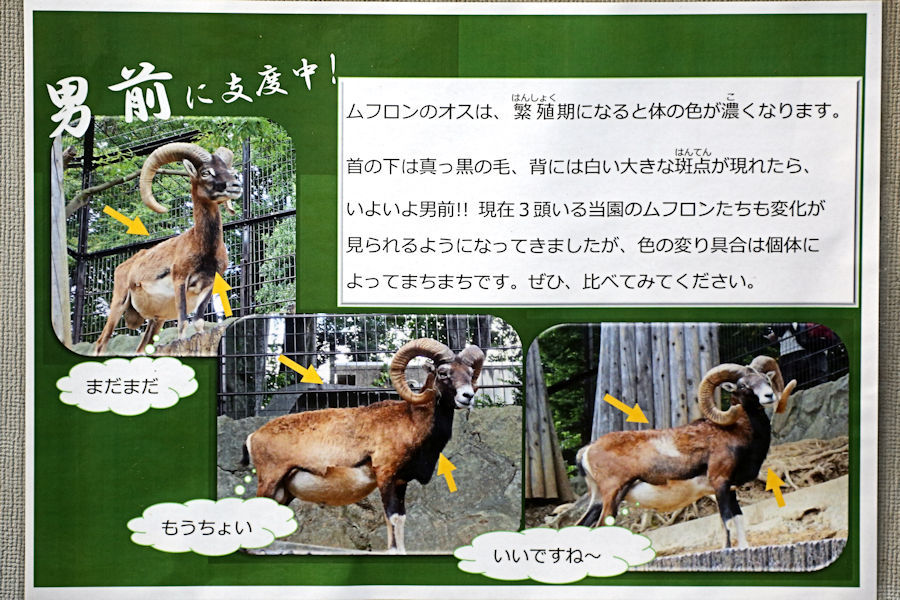 男前に支度中!
ムフロンのオスは、繁殖期になると体の色が濃くなります。
首の下は真っ黒の毛、背には白い大きな斑点が現れたら、
いよいよ男前!! 現在３頭いる当園のムフロンたちも変化が
見られるようになってきましたが、色の変り具合は個体に
よってまちまちです。ぜひ、比べてみてください。
まだまだ
もうちょい
いいですね～